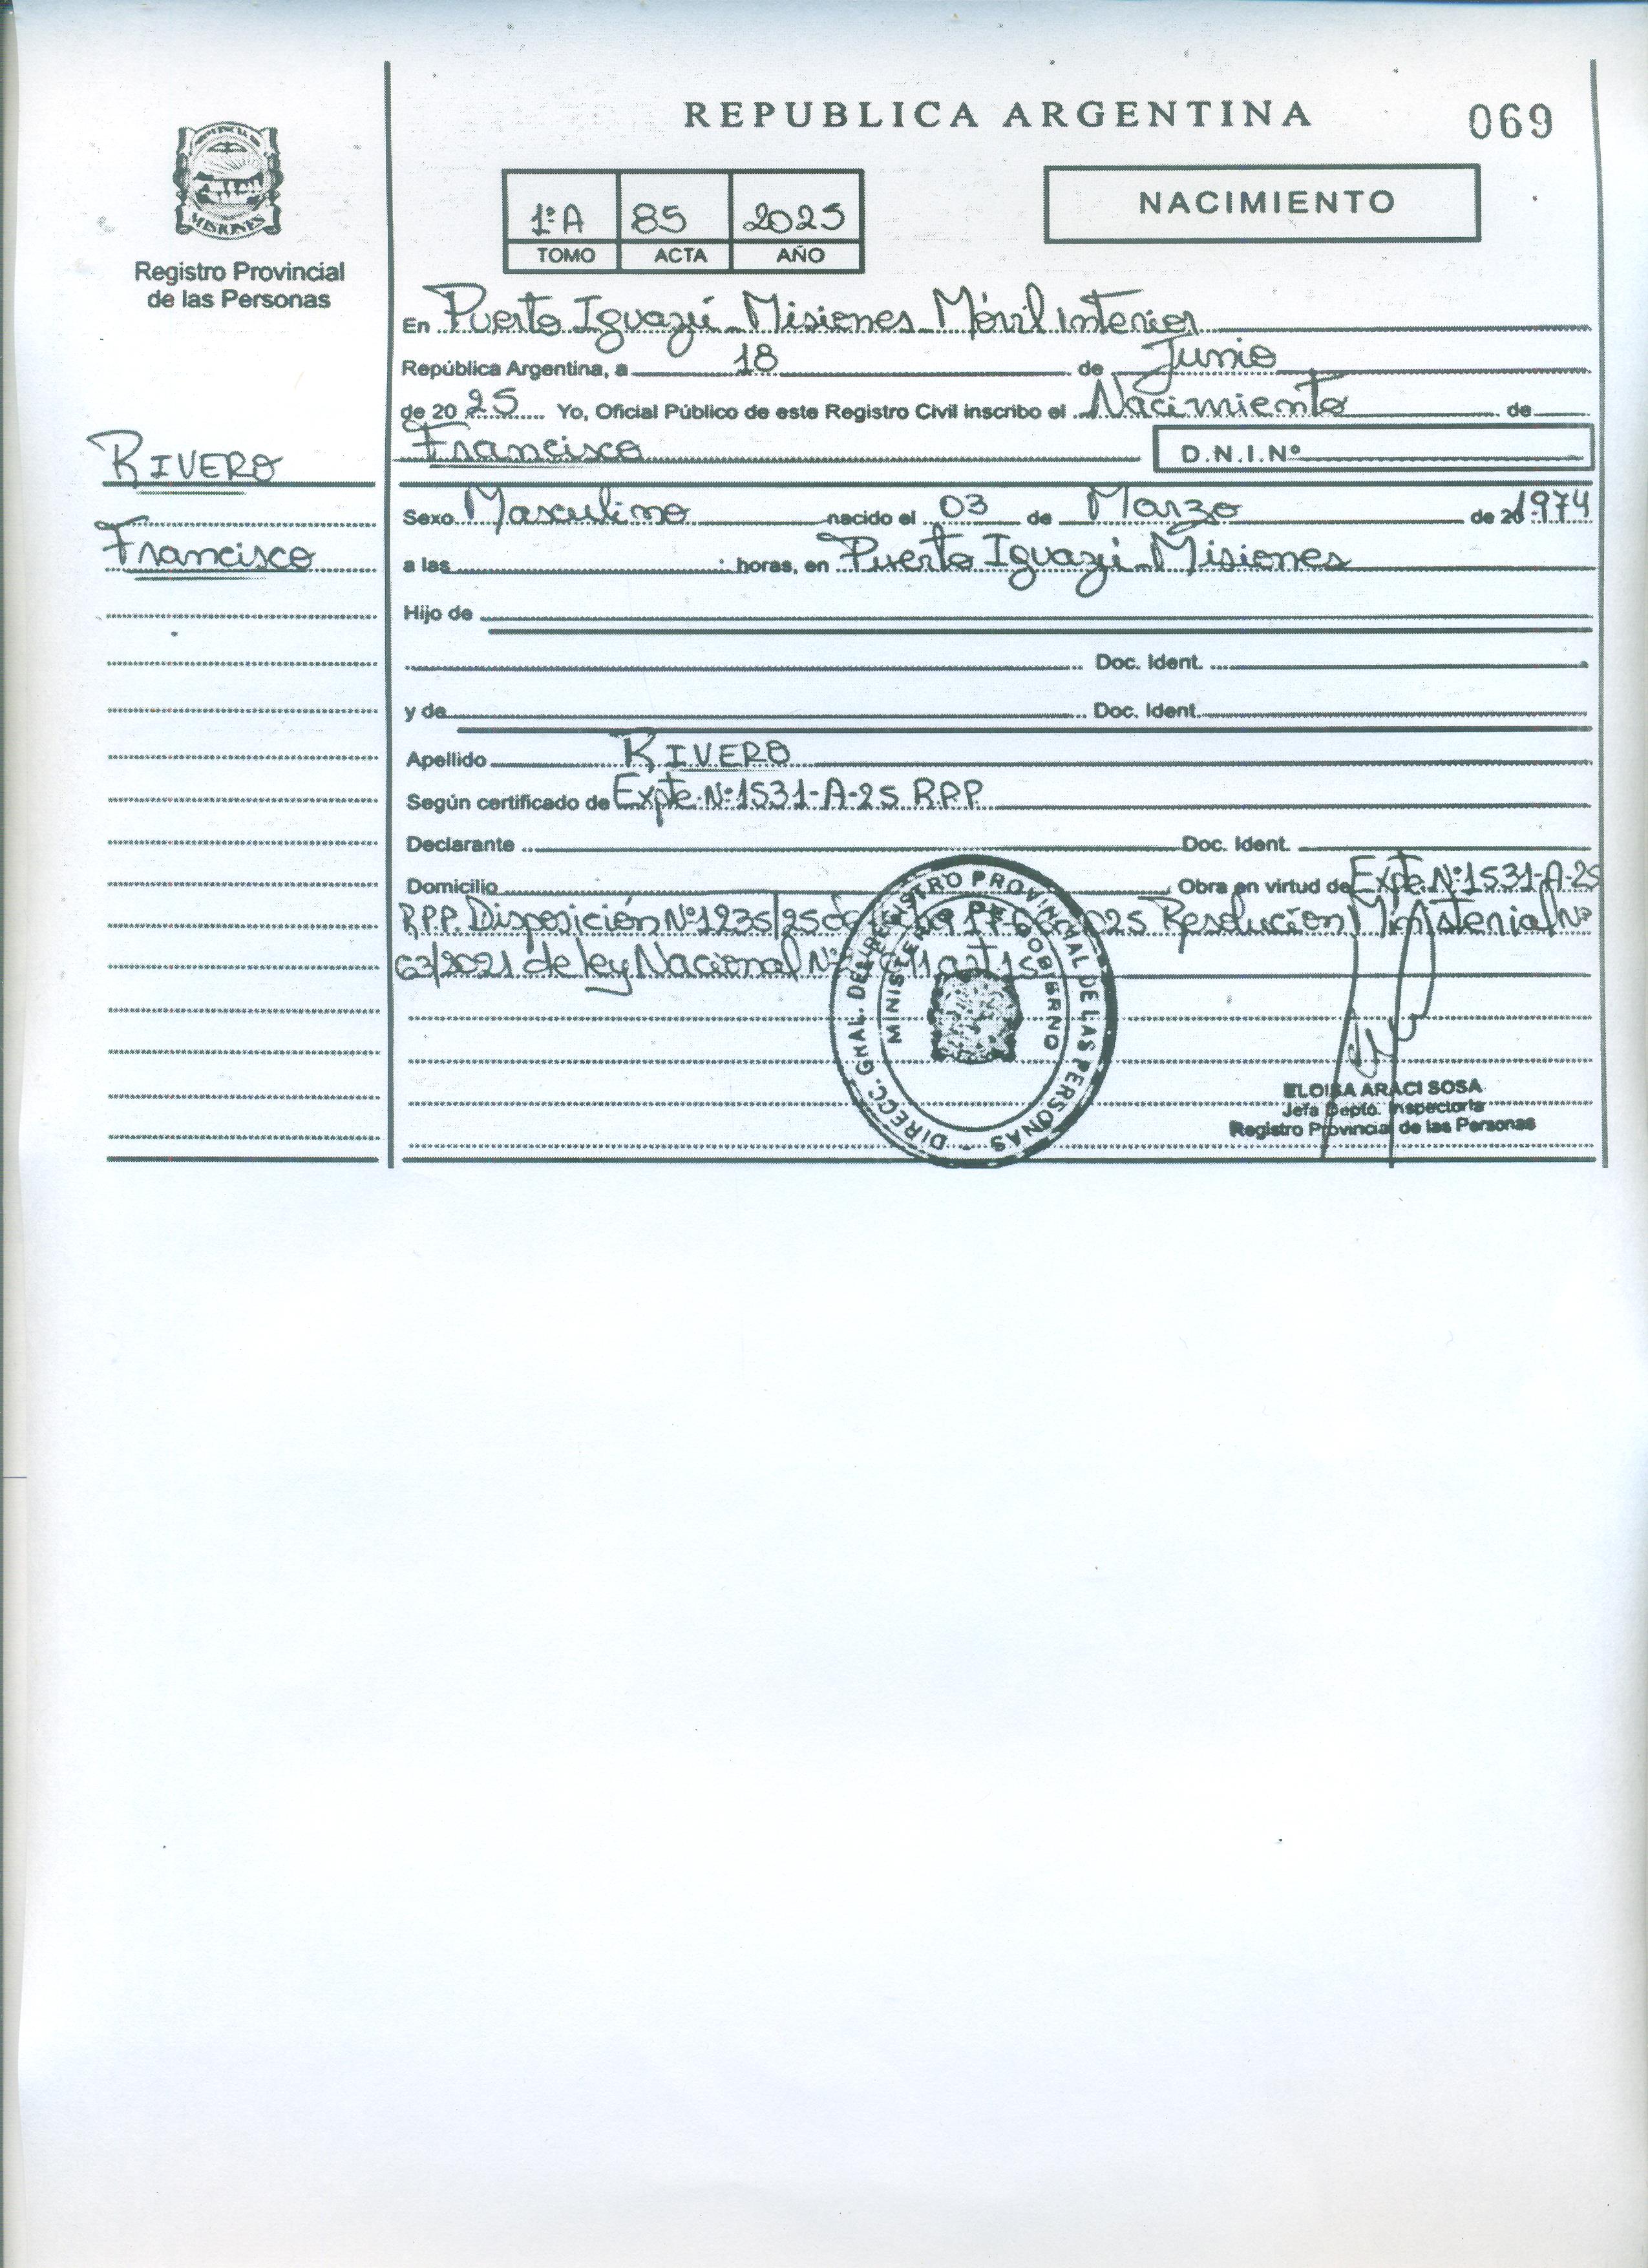 REPUBLICA ARGENTINA
069
PROVINCIA DE
MISIONES
Registro Provincial
de las Personas
1ºA 85 2025
TOMO ACTA AÑO
NACIMIENTO
En Puerto Iguazú - Misiones - Móvil Interior
República Argentina, a 18 de Junio
de 2025 Yo, Oficial Público de este Registro Civil inscribo el Nacimiento de
Francisco D.N.I.Nº
RIVERO
Francisco
Sexo Masculino nacido el 03 de Marzo de 1974
a las horas, en Puerto Iguazú - Misiones
Hijo de
Doc. Ident.
y de Doc. Ident.
Apellido RIVERO
Según certificado de Expte. Nº 1531-A-25 R.P.P.
Declarante Doc. Ident.
Domicilio Obra en virtud de Expte. Nº 1531-A-25
R.P.P. Disposición Nº 1235/25 Resolución Ministerial Nº
63/2021 de ley Nacional Nº art 15
DIRECC. GRAL. DEL REGISTRO PROVINCIAL DE LAS PERSONAS
MINISTERIO DE GOBIERNO
ELOISA ARACI SOSA
Jefa Depto. Inspectoria
Registro Provincial de las Personas